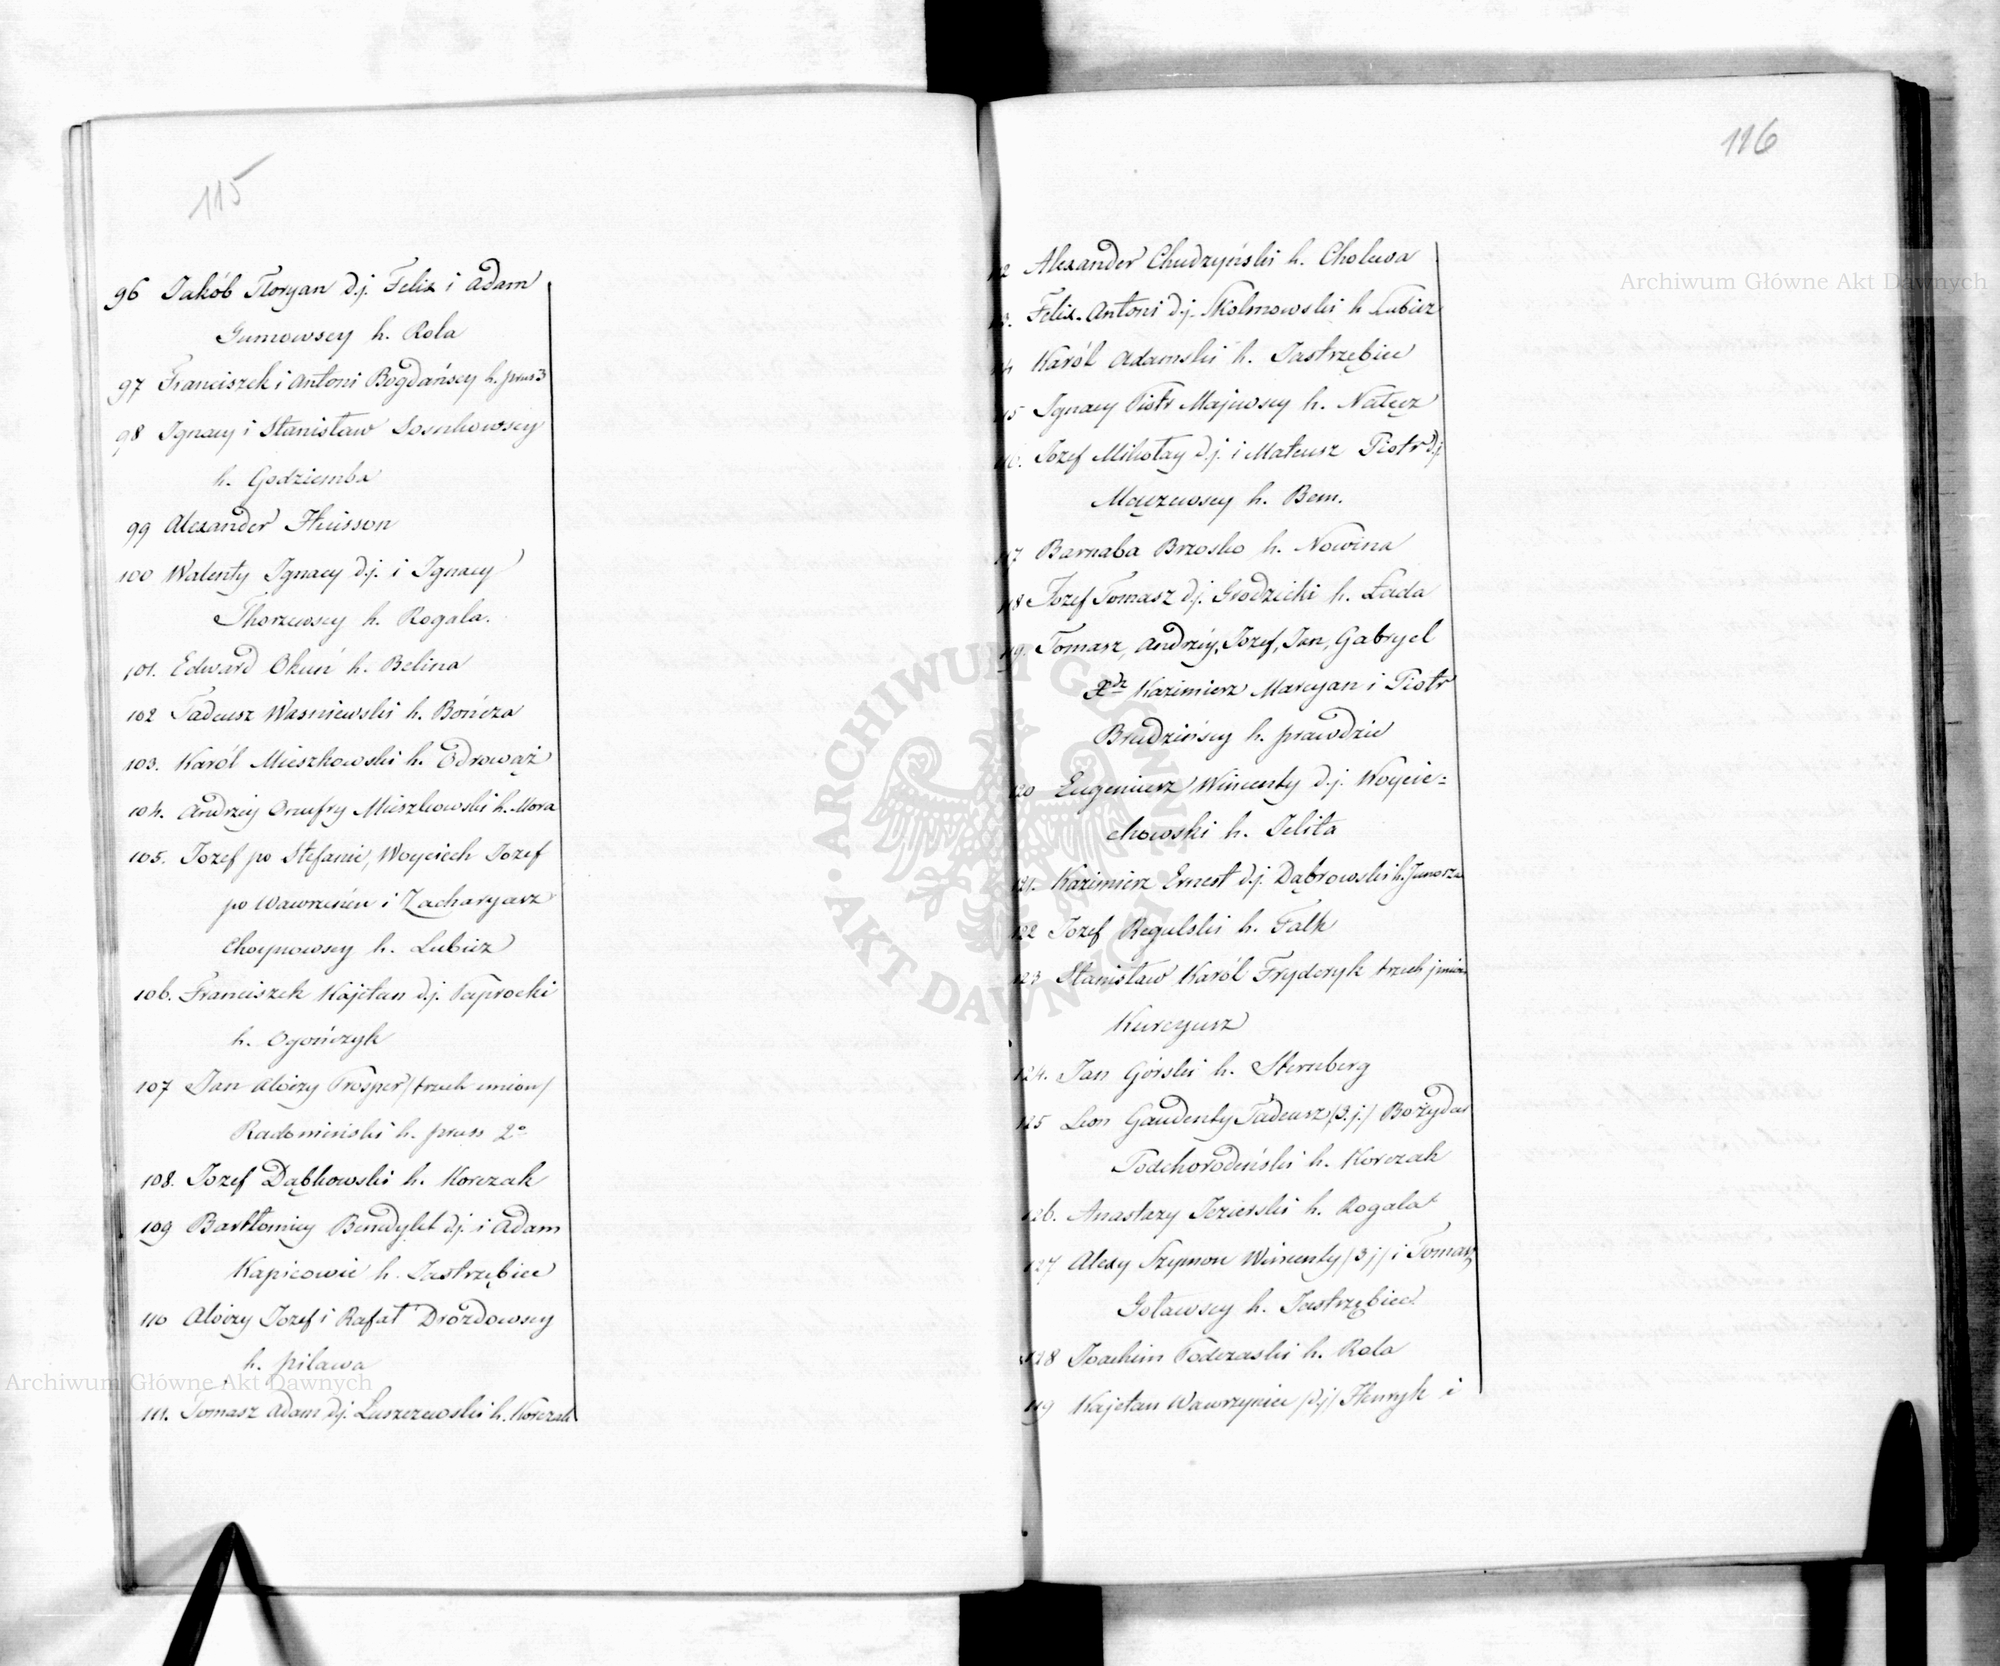 115
96 Jakób Floryan d.j. Felix i Adam
Gumowscy h. Rola
97 Franciszek i Antoni Bogdańscy h. prus 3
98 Ignacy i Stanisław Sosnkowscy
h. Godziemba
99 Alexander Husson
100 Walenty Ignacy d.j. i Ignacy
Thorzewscy h. Rogala.
101. Edward Okuń h. Belina
102 Tadeusz Wasniewski h. Bończa
103. Karól Mieszkowski h. Odrowąż
104. Andrzéy Onufry Mieszkowski h. Mora
105. Jozef po Stefanie, Woyciech Jozef
po Wawrzeńcu i Zacharyasz
Choynowscy h. Lubicz
106. Franciszek Kajetan d.j. Paprocki
h. Ogończyk
107 Jan Aloizy Prosper /trzech imion/
Radomiński h. prus 2º
108. Jozef Dąbkowski h. Korczak
109 Bartłomiey Benedykt d.j. i Adam
Kapicowie h. Jastrzębiec
110 Aloizy Jozef i Rafał Drozdowscy
h. pilawa
111. Tomasz Adam d.j. Łuszczewski h. Korczak
116
112 Alexander Chudzyński h. Cholewa
113. Felix Antoni d.j. Skolmowski h Lubicz
114 Karól Adamski h. Jastrzębiec
115 Ignacy Piotr Majewscy h. Nałęcz
116. Jozef Mikołay d.j. i Mateusz Piotr d.j.
Mączewscy h. Bem.
117 Barnaba Brzosko h. Nowina
118 Jozef Tomasz d.j. Grodzicki h. Łada
119. Tomasz, Andrzéy, Jozef, Jan, Gabryel
Xdz Kazimierz Marcyan i Piotr
Brudzińscy h. prawdzic
120 Eugeniusz Wincenty d.j. Woycie=
chowski h. Jelita
121. Kazimierz Ernest d.j. Dąbrowski h. Junosza
122 Jozef Regulski h. Falk
123 Stanisław Karól Fryderyk trzech imion
Kurcyusz
124. Jan Górski h. Sternberg
125 Leon Gaudenty Tadeusz /3.j./ Bożydar
Podhorodeński h. Korczak
126. Anastazy Jezierski h. Rogala
127 Alexy Szymon Wincenty /3 j/ i Tomasz
Goławscy h. Jastrzębiec
128 Joachim Podczaski h. Rola
119 Kajetan Wawrzyniec /d.j/ Henryk i
Archiwum Główne Akt Dawnych
Archiwum Główne Akt Dawnych
ARCHIWUM GŁÓWNE • AKT DAWNYCH •